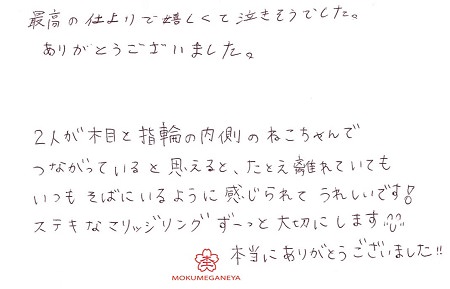 最高の仕上りで嬉しくて泣きそうでした。
ありがとうございました。
2人が木目と指輪の内側のねこちゃんで
つながっていると思えると、たとえ離れていても
いつもそばにいるように感じられてうれしいです!
ステキなマリッジリングずーっと大切にします
本当にありがとうございました!!
MOKUMEGANEYA